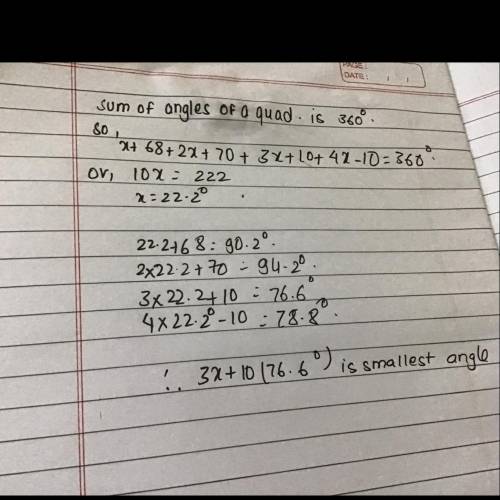 PAGE:
DATE: / /
sum of angles of a quad. is 360°.
so,
x+68+2x+70+3x+10+4x-10=360°.
or, 10x= 222
x=22.2°
22.2+68=90.2°.
2x22.2+70=94.2°.
3x22.2+10=76.6°
4x22.2°-10=78.8°.
∴ 3x+10(76.6°) is smallest angle